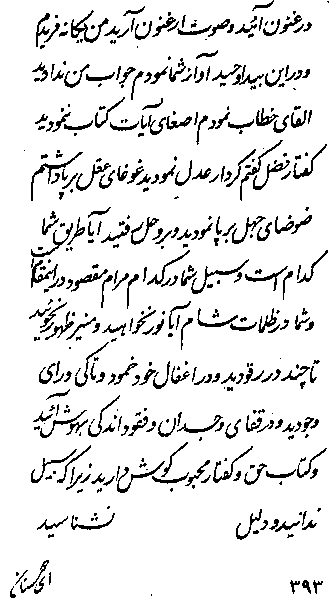 در غنون آئید و صوت ارغنون آرید من یگانه فریدم
و در این بیدا وحید آواز شما نمودم جواب من ندادید
القای خطاب نمودم اصغای آیات کتاب ننمودید
گفتار فضل گفتم کردار عدل نمودید غوغای عقل برپا داشتم
ضوضای جهل برپا نمودید و بر وحل رفتید آیا طریق شما
کدام است و سبیل شما در کدام مرام مقصود در
و شما در ظلمات شام آیا نور نخواهید و منیر ظهور نجوئید
تا چند در رقودید و در اغفال خود خمود و تا کی ورای
وجودید و در قفای وجدان و فقود اندکی بهوش آئید
و کتاب حق و گفتار محبوب گوش دارید زیرا که سبیل
ندانید و دلیل نشناسید
۳۹۳ ای